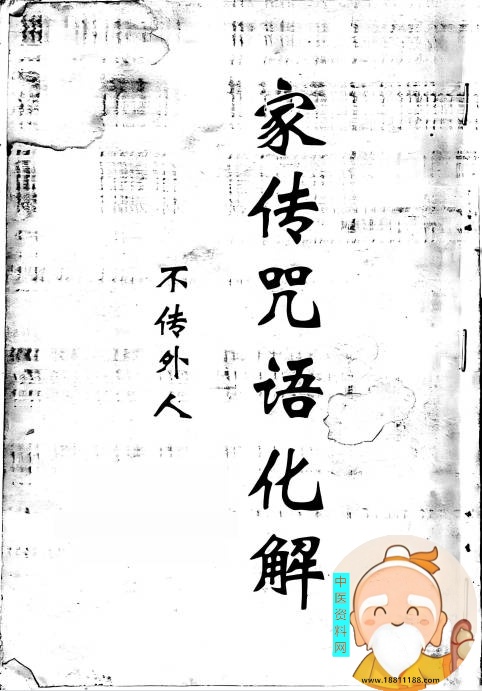 家传咒语化解
不传外人
中医资料网
www.18811188.com